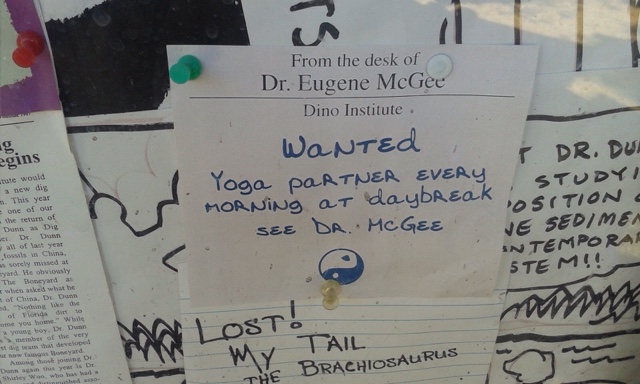 From the desk of
Dr. Eugene McGee
Dino Institute
WANTED
Yoga PARTNER EVERY
MORNING AT daybreak
SEE DR. McGEE
LOST!
MY TAIL
THE BRACHIOSAURUS
egins
tute would
a new dig
n. This year
one of our
the return of
Dunn as Dig
er. Dr. Dunn
all of last year
fossils in China,
as sorely missed at
eyard. He obviously
The Boneyard as
when asked what he
of China, Dr. Dunn
"Nothing like the
of Florida dirt to
me you home." While
a young boy, Dr. Dunn
a member of the very
dig team that developed
now famous Boneyard.
Among those joining Dr.
Dunn again this year is Dr.
Shirley Woo, who has
DR. DUN
STUDYI
OSITION
NE SEDIME
NTEMPORA
STEM!!